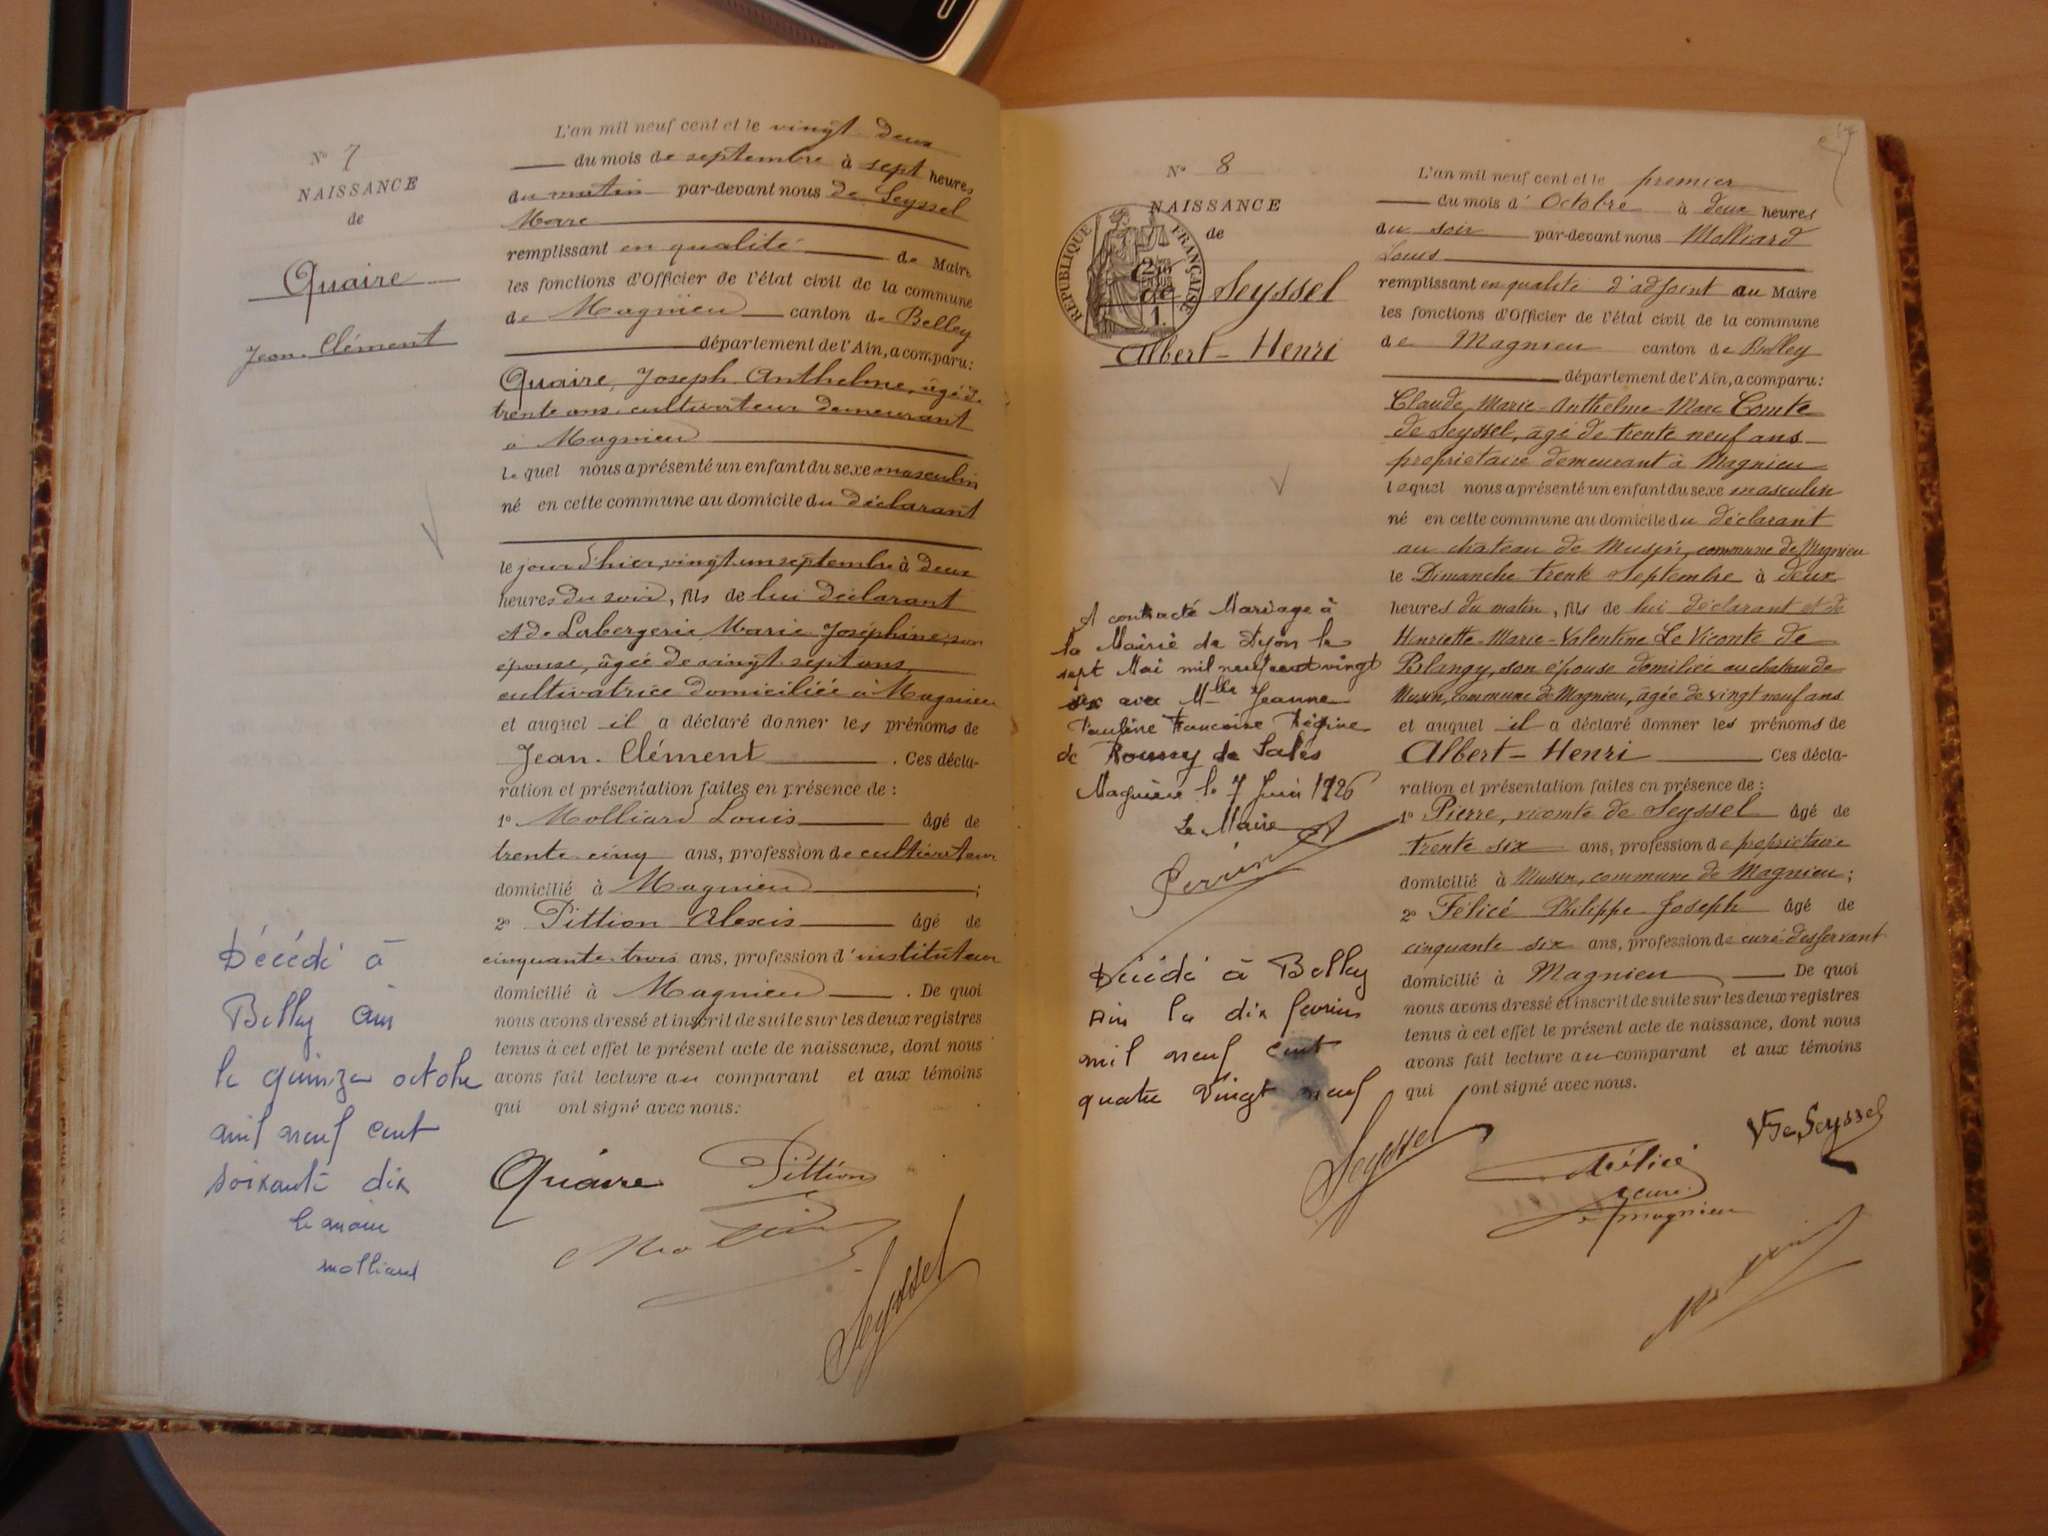 N° 7
NAISSANCE
de
Quaire
Jean-Clément
Décédé à
Belley Ain
le quinze octobre
mil neuf cent
soixante dix
le maire
molliard
L'an mil neuf cent et le vingt-deux
du mois de septembre à sept heures
du matin par-devant nous de Seyssel
Marc
remplissant en qualité de Maire
les fonctions d'Officier de l'état civil de la commune
de Magnieu canton de Belley
département de l'Ain, a comparu:
Quaire, Joseph Anthelme, âgé de
trente ans cultivateur demeurant
à Magnieu
lequel nous a présenté un enfant du sexe masculin
né en cette commune au domicile du déclarant
le jour d'hier, vingt un septembre à deux
heures du soir, fils de lui déclarant
et de Labergerie Marie Joséphine, son
épouse, âgée de vingt sept ans,
cultivatrice domiciliée à Magnieu
et auquel il a déclaré donner les prénoms de
Jean-Clément. Ces décla-
ration et présentation faites en présence de :
1° Molliard Louis âgé de
trente cinq ans, profession de cultivateur
domicilié à Magnieu ;
2° Pittion Alexis âgé de
cinquante-trois ans, profession d'instituteur
domicilié à Magnieu. De quoi
nous avons dressé et inscrit de suite sur les deux registres
tenus à cet effet le présent acte de naissance, dont nous
avons fait lecture au comparant et aux témoins
qui ont signé avec nous.
Quaire Pittion
Seyssel
N° 8
NAISSANCE
de
RÉPUBLIQUE FRANÇAISE
de Seyssel
Albert-Henri
A contracté Mariage à
la Mairie de Dyon le
sept Mai mil neuf cent vingt
six avec Mlle Jeanne
Pauline Francoise Régine
de Roussy de Sales
Magnieu le 7 Juin 1926
Le Maire
Perrin
Décédé à Belley
Ain le dix fevrier
mil neuf cent
quatre vingt neuf
L'an mil neuf cent et le premier
du mois d'Octobre à deux heures
du soir par-devant nous Molliard
Louis
remplissant en qualité d'adjoint au Maire
les fonctions d'Officier de l'état civil de la commune
de Magnieu canton de Belley
département de l'Ain, a comparu:
Claude-Marie-Anthelme-Marc Comte
de Seyssel, âgé de trente neuf ans
propriétaire demeurant à Magnieu
lequel nous a présenté un enfant du sexe masculin
né en cette commune au domicile du déclarant
au château de Musin, commune de Magnieu
le Dimanche trente Septembre à deux
heures du matin, fils de lui déclarant et de
Henriette-Marie-Valentine Le Viconte de
Blangy, son épouse domiciliée au château de
Musin, commune de Magnieu, âgée de vingt neuf ans
et auquel il a déclaré donner les prénoms de
Albert-Henri Ces décla-
ration et présentation faites en présence de :
1° Pierre, vicomte de Seyssel âgé de
trente six ans, profession de propriétaire
domicilié à Musin, commune de Magnieu;
2° Félicé Philippe Joseph âgé de
cinquante six ans, profession de curé desservant
domicilié à Magnieu De quoi
nous avons dressé et inscrit de suite sur les deux registres
tenus à cet effet le présent acte de naissance, dont nous
avons fait lecture au comparant et aux témoins
qui ont signé avec nous.
Seyssel Félicé Vte de Seyssel
curé
magnieu